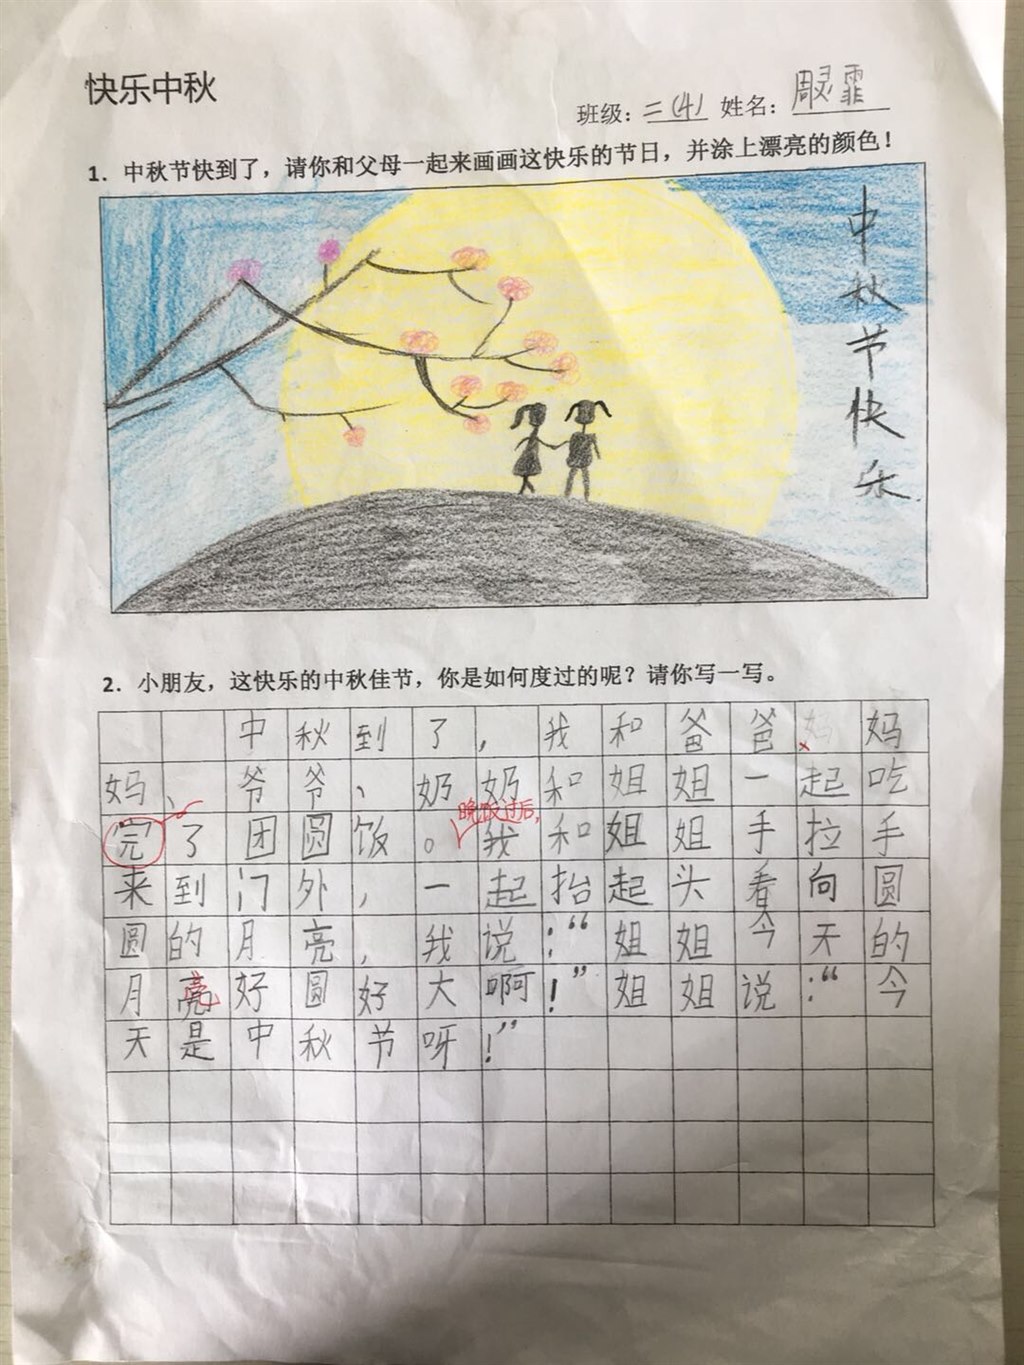 快乐中秋
班级：二(4) 姓名：周灵霏
1．中秋节快到了，请你和父母一起来画画这快乐的节日，并涂上漂亮的颜色！
中秋节快乐
2．小朋友，这快乐的中秋佳节，你是如何度过的呢？请你写一写。
中秋到了，我和爸爸妈妈
妈、爷爷、奶奶和姐姐一起吃
晚饭过后，
完了团圆饭。我和姐姐手拉手
来到门外，一起抬起头看向圆
圆的月亮，我说：“姐姐今天的
月亮好圆好大啊！”姐姐说：“今
天是中秋节呀！”